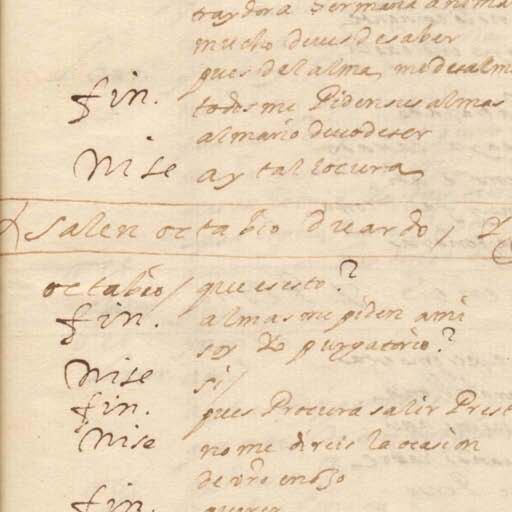 traydora hermana anima
mucho deues de saber
pues del alma me desalma
fin. todos me Piden sus almas
almario deuo de ser
Nise ay tal locura
salen octabio duardo /
octabio / que es esto?
fin. almas me piden a mi
soy yo purgatorio?
Nise si /
fin. pues Procura salir Prest
Nise no me direis la ocasion
de vro enojo
fin. querer